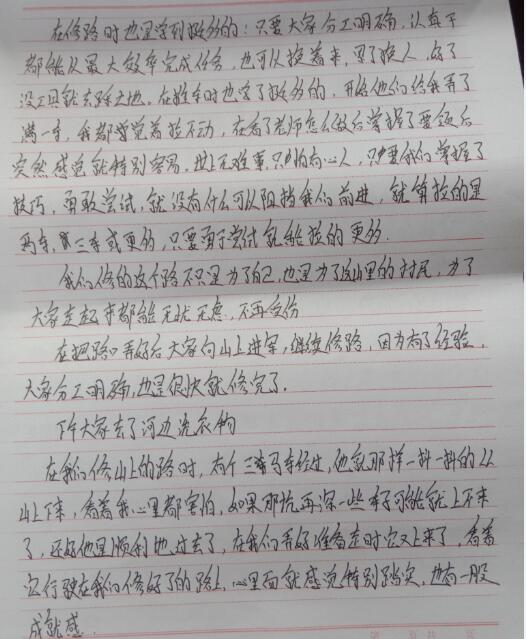 在修路时也是学到挺多的：只要大家分工明确，认真干
都能从最大效率完成任务，也可以换着来，累了换人，好了
没工具就去踩土地。在推车时也学了挺多的，开始他们给我弄了
满一车，我都感觉着拉不动，在看了老师怎么做后掌握了要领后
突然感觉就特别容易，世上无难事，只怕有心人，只要我们掌握了
技巧，勇敢尝试，就没有什么可以阻挡我们前进，就算拉的是
两车，三车或更多，只要勇于尝试就能拉的更多.
我们修的这个路不只是为了自己，也是为了这山里的村民，为了
大家走起来都能无忧无虑，不再受伤
在把路口弄好后大家向山上进军，继续修路，因为有了经验，
大家分工明确，也是很快就修完了.
下午大家去了河边洗衣物
在我们修山上的路时，有个三轮马车经过，他就那样一抖一抖的从
山上下来，看着我心里都害怕，如果那坑再深一些车子可能就上不来
了，还好他是顺利地过去了，在我们弄好准备走时它又上来了，看着
它行驶在我们修好了的路上，心里面就感觉特别踏实，也有一股
成就感.